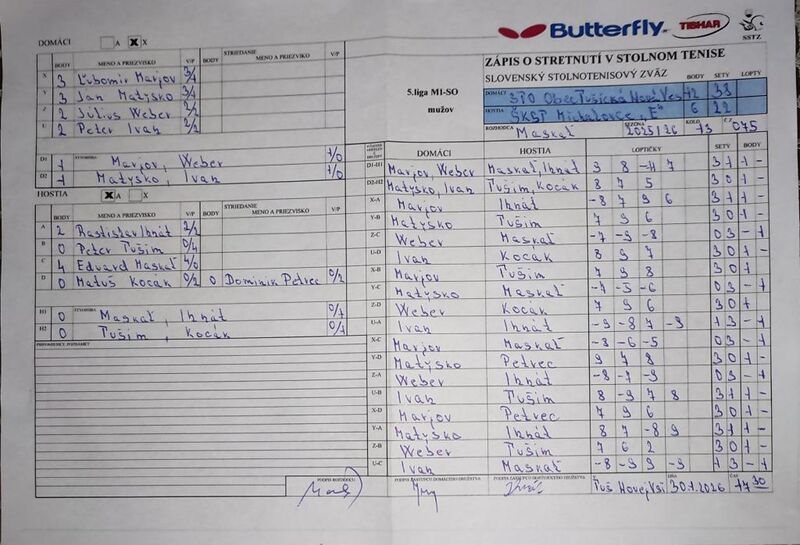 Butterfly TIBHAR SSTZ
DOMÁCI A X X
ZÁPIS O STRETNUTÍ V STOLNOM TENISE
SLOVENSKÝ STOLNOTENISOVÝ ZVÄZ BODY SETY LOPTY
5.liga MI-SO
mužov
DOMÁCI STO Obec Tušická Nová Ves 12 33
HOSTIA ŠKST Michalovce "E" 6 22
ROZHODCA Maskaľ SEZÓNA 2025/26 KOLO 13 Č.Z 075
BODY MENO A PRIEZVISKO V/P BODY STRIEDANIE MENO A PRIEZVISKO V/P
X 3 Ľubomír Marjov 3/1
Y 3 Ján Matyško 3/1
Z 2 Július Weber 2/2
U 2 Peter Ivan 2/2
D1 1 ŠTVORHRA Marjov, Weber 1/0
D2 1 Matyško, Ivan 1/0
HOSTIA X A X
BODY MENO A PRIEZVISKO V/P BODY STRIEDANIE MENO A PRIEZVISKO V/P
A 2 Rastislav Ihnát 2/2
B 0 Peter Tušim 0/4
C 4 Eduard Maskaľ 4/0
D 0 Matúš Kocák 0/2 0 Dominik Petrec 0/2
H1 0 ŠTVORHRA Maskaľ, Ihnát 0/1
H2 0 Tušim, Kocák 0/1
PRIPOMIENKY, POZNÁMKY
DOMÁCI HOSTIA LOPTIČKY SETY BODY
D1-H1 Marjov, Weber Maskaľ, Ihnát 9 8 -11 7 3 1 1 -
D2-H2 Matyško, Ivan Tušim, Kocák 8 7 5 3 0 1 -
X-A Marjov Ihnát -8 7 9 6 3 1 1 -
Y-B Matyško Tušim 7 9 6 3 0 1 -
Z-C Weber Maskaľ -7 -9 -8 0 3 - 1
U-D Ivan Kocák 8 9 7 3 0 1 -
X-B Marjov Tušim 7 9 8 3 0 1 -
Y-C Matyško Maskaľ -7 -5 -6 0 3 - 1
Z-D Weber Kocák 7 9 6 3 0 1 -
U-A Ivan Ihnát -9 -8 7 -9 1 3 - 1
X-C Marjov Maskaľ -8 -6 -5 0 3 - 1
Y-D Matyško Petrec 9 7 8 3 0 1 -
Z-A Weber Ihnát -8 -7 -9 0 3 - 1
U-B Ivan Tušim 8 -9 7 8 3 1 1 -
X-D Marjov Petrec 7 9 6 3 0 1 -
Y-A Matyško Ihnát 8 7 -8 9 3 1 1 -
Z-B Weber Tušim 7 6 2 3 0 1 -
U-C Ivan Maskaľ -8 -9 9 -9 1 3 - 1
PODPIS ROZHODCU PODPIS ZÁSTUPCU DOMÁCEHO DRUŽSTVA PODPIS ZÁSTUPCU HOSŤUJÚCEHO DRUŽSTVA V Tuš Novej Vsi DŇA 30.1.2026 ČAS 17 30